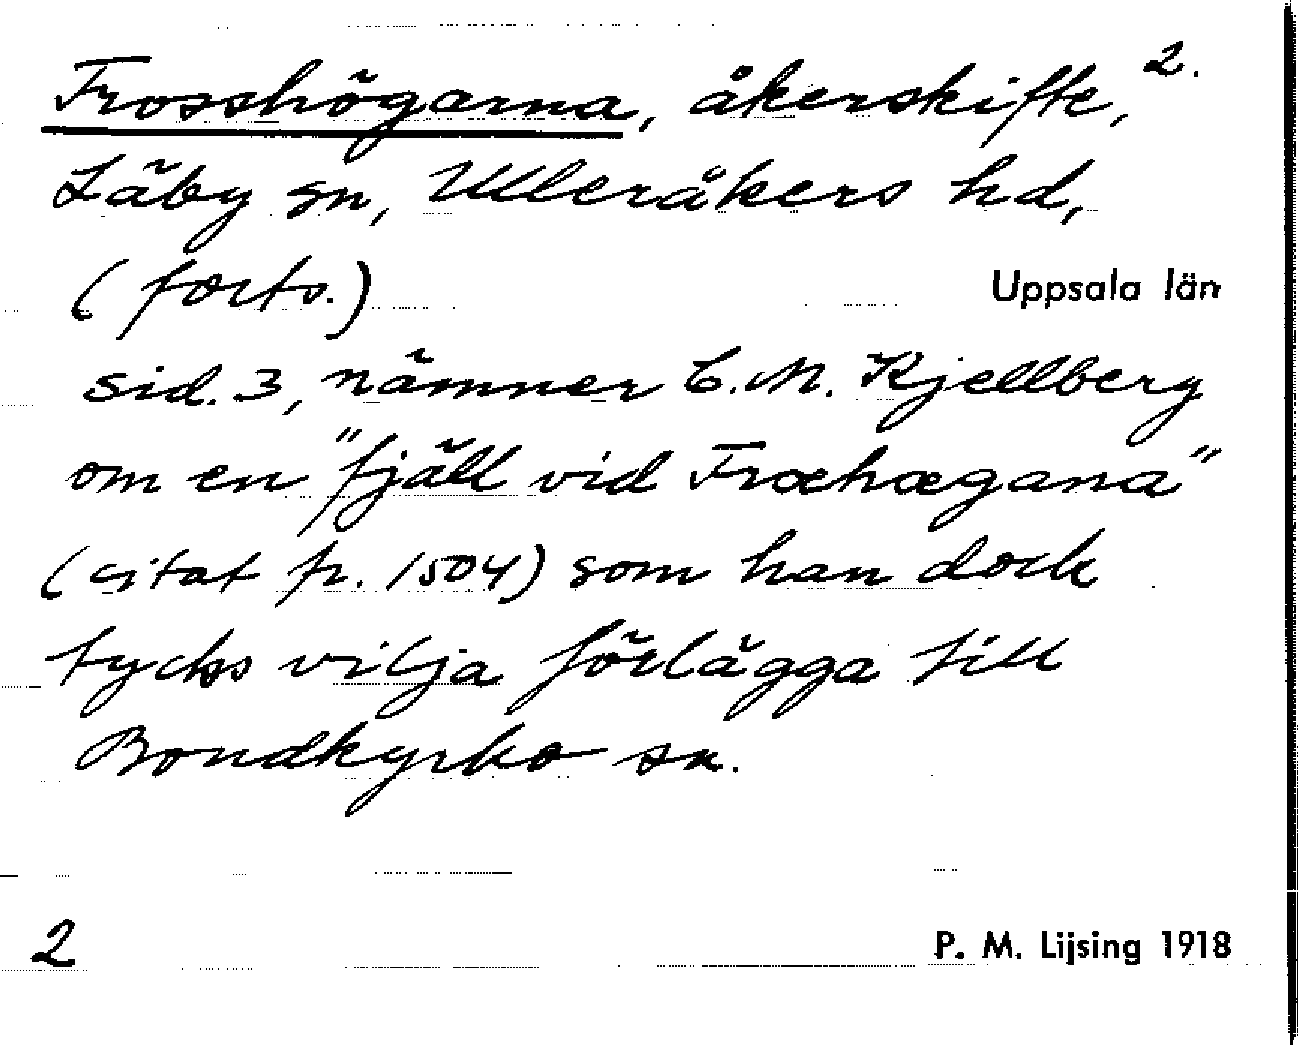 Frosshögarna, åkerskifte, 2.
Läby sn, Ulleråkers hd,
(forts.) Uppsala län
sid. 3, nämner C. M. Kjellberg
om en "fjäll vid Fræhægana"
(citat fr. 1504) som han dock
tycks vilja förlägga till
Bondkyrko sn.
2 P. M. Lijsing 1918